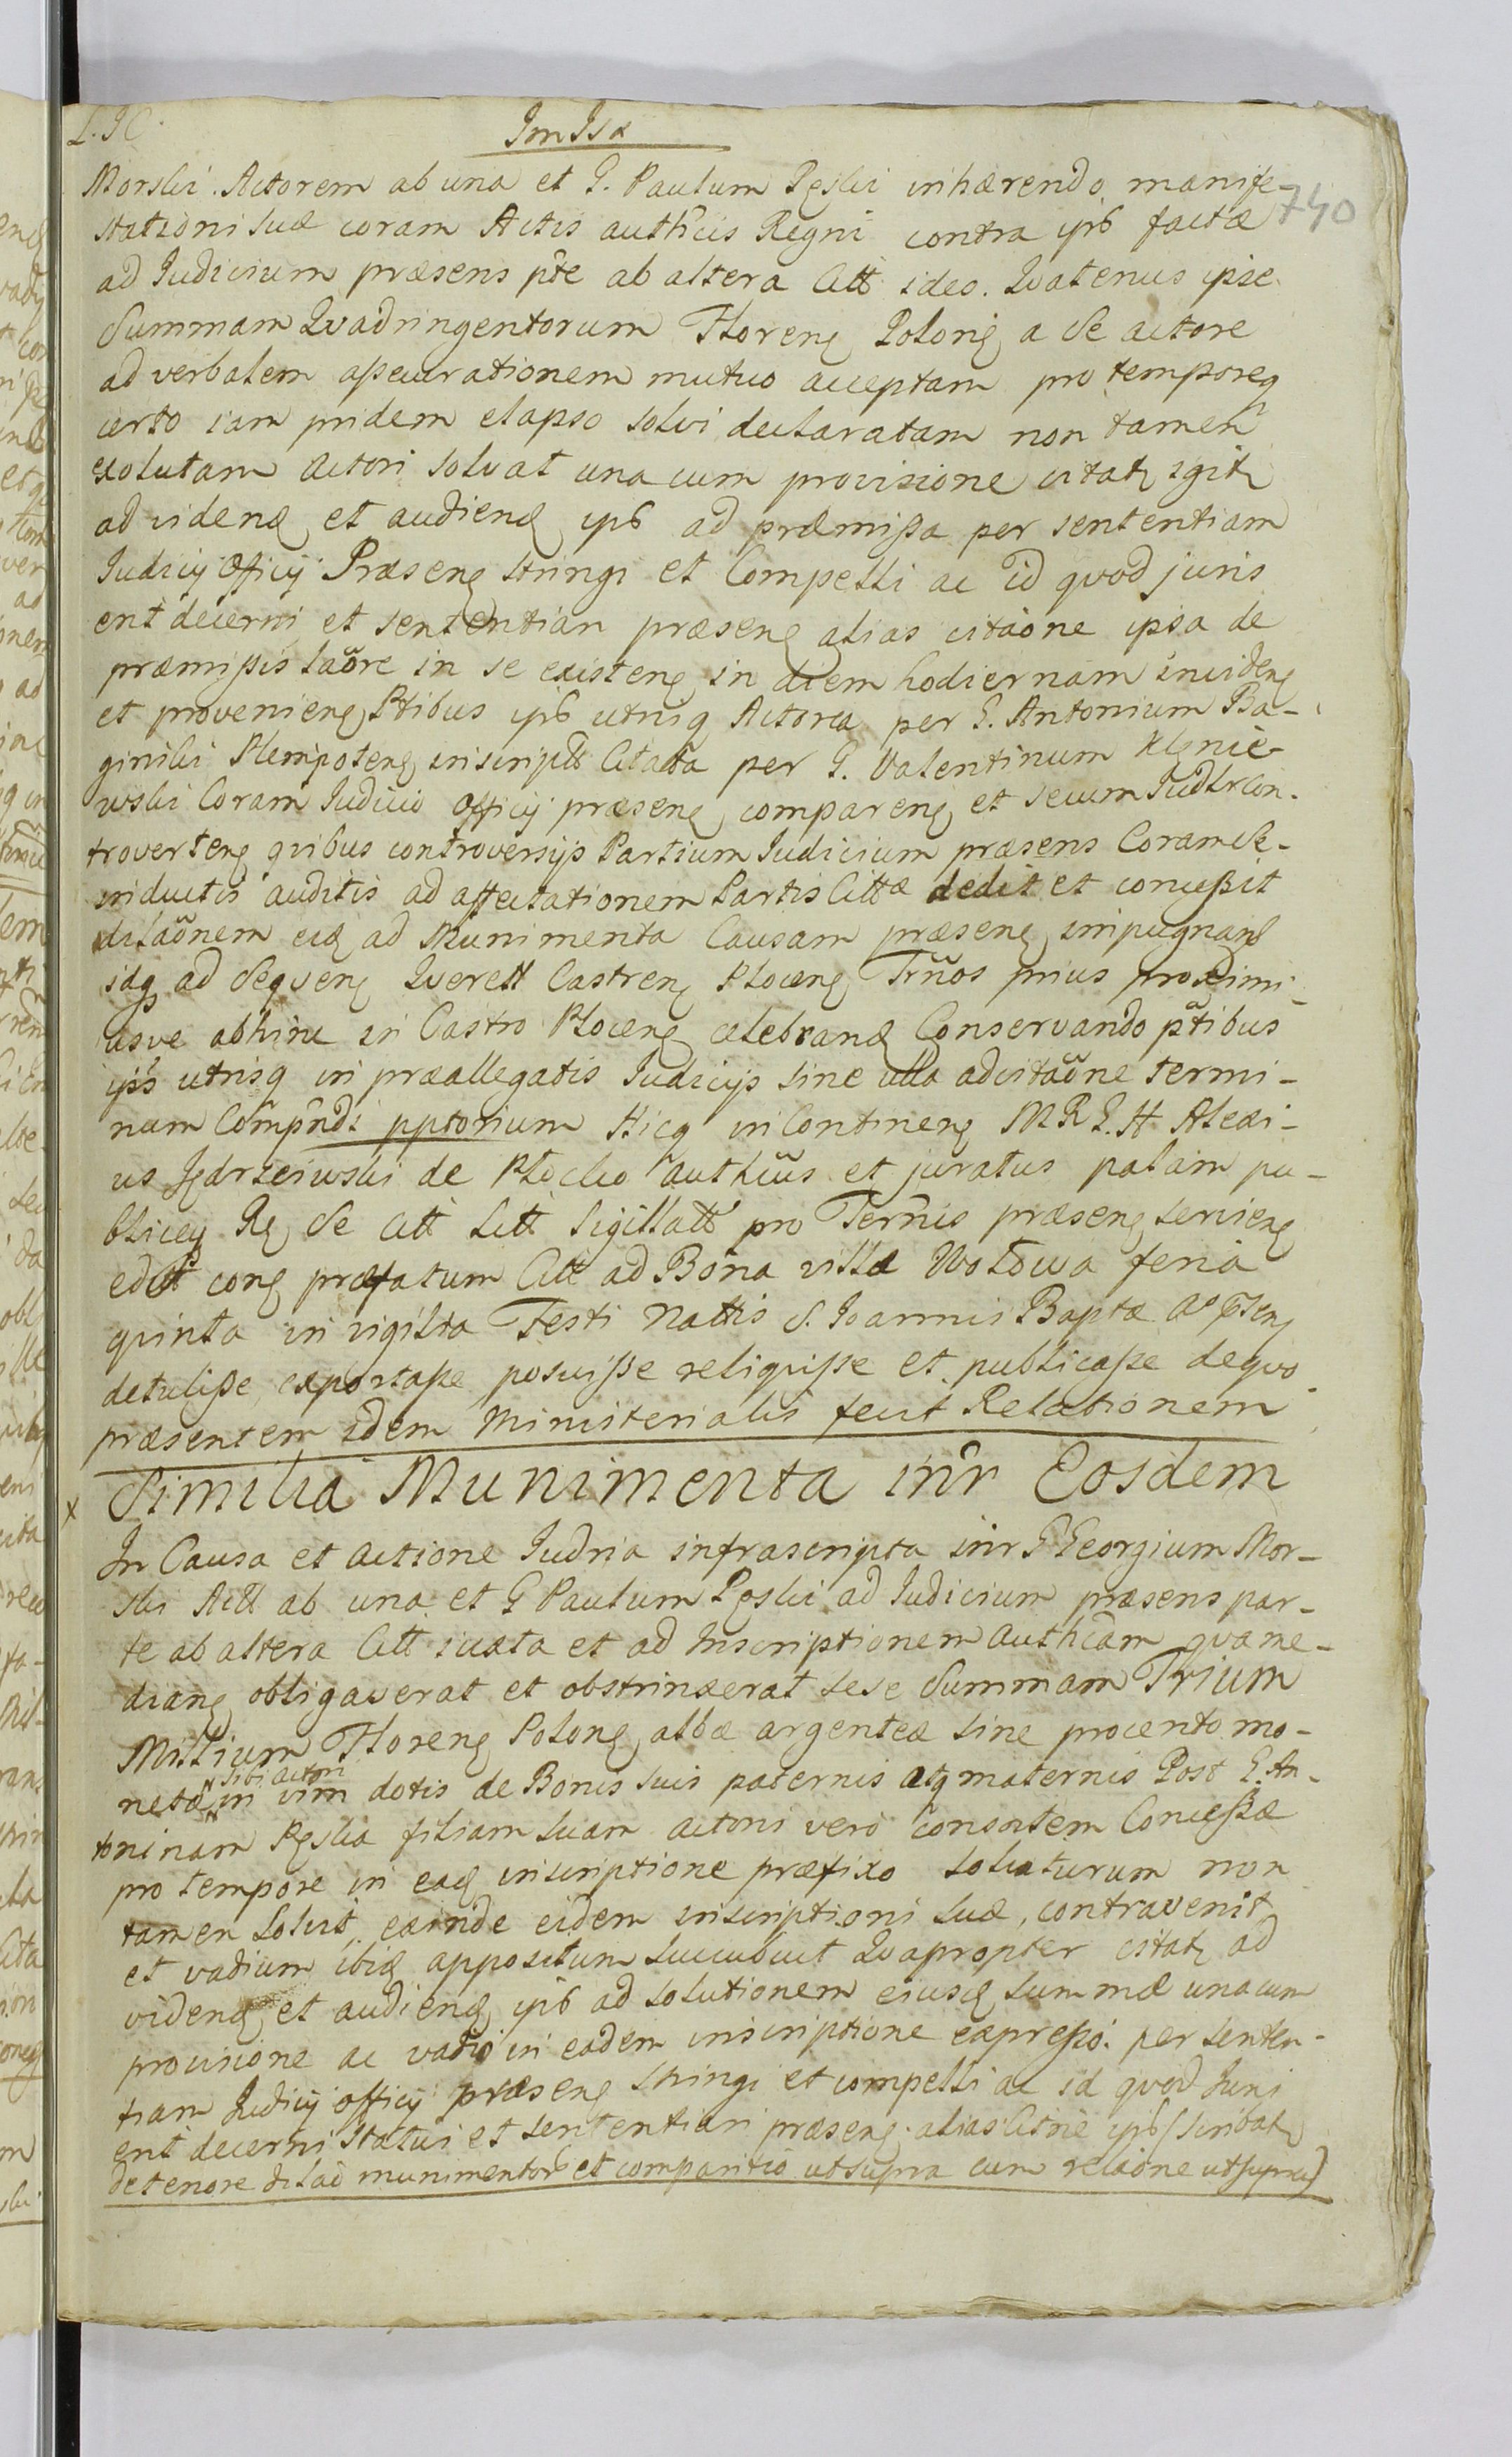 L. J C.
Morski Actorem ab una et G. Paulum Pęski inhærendo manife-
740
stationi suæ coram Actis authcis Regni contra ips factæ
ad Judicium præsens pte ab altera Citt ideo. Qvatenus ipse
Summam Qvadringentorum Floreng Polong a se actore
ad verbalem assecurationem mutuo acceptam pro temporeq
certo iam pridem elapso solvi declaratam non tamen
exolutam actori solvat una cum provisione citatq igitq
ad videnq et audienq ips ad præmissa per sententiam
Judicij Officij Præseng stringi et Compelli ac id qvod juris
erit decerni et sententiari præseng alias citaone ipsa de
præmissis latiore in se existeng in diem hodiernam incideng
et provenieng Ptibus ips utrisq Actorea per G. Antonium Ba-
ginski Plenipoteng inscriptt Citatta per G. Valentinum Klęnie-
wski Coram Judicio Officij præseng compareng et secum Judlr con-
troverteng qvibus controversijs Partium Judicium præsens Coram se
inductis auditis ad affectationem Partis Cittæ dedit et concessit
dilaonem eid ad Munimenta Causam præseng impugnang
idq ad Seqveng Qverell Castreng Ploceng Trnos prius proximi-
usve abhinc in Castro Ploceng celebrand Conservando ptibus
ips utrisq in præallegatis Judicijs sine ulla adcitaone termi-
num Compndi pptorium Hicq in Contineng M R G. H Alexi-
us Jędrzeiwski de Plocko authcus et juratus palam pu-
bliceq Rg Se Citt Litt Sigillatt pro Ternis præseng servieng
edit cong præfatum Citt ad Bona villæ Wolowa feria
qvinta in vigilia Festi Nattis S. Joannis Baptæ Ao pseng
detulisse exportasse posuisse reliqvisse et publicasse deqvo
præsentem idem Ministerialis fecit Relationem
x Similia Munimenta inr Eosdem
In Causa et actione Judria infrascripta inr G Georgium Mor-
ski Actt ab una et G Paulum Pęski ad Judicium præsens par-
te ab altera Citt iuxta et ad Inscriptionem authcam qva me-
diang obligaverat et obstrinxerat sese Summam Trium
Millium Floreng Polong albæ argenteæ sine procento mo-
sibi actori
netæ in vim dotis de Bonis suis paternis atq maternis Post G. An-
toninam Pęska filiam suam actori vero consortem Concessæ
pro tempore in eaq inscriptione præfixo soluturum non
tamen solvit exinde eidem inscriptioni suæ, contravenit
et vadium ibiq appositum succubuit Qvapropter citatq ad
videnq et audienq ips ad solutionem eiusq summæ una cum
provisione ac vadio in eadem inscriptione expresso. per senten-
tiam Judicij officij præseng stringi et compelli ac id qvod Juris
erit decerni Statui et sententiari præseng. alias Citne ips (scribatq
de tenore dilao munimentor et comparitio ut supra cum relaone ut supra)